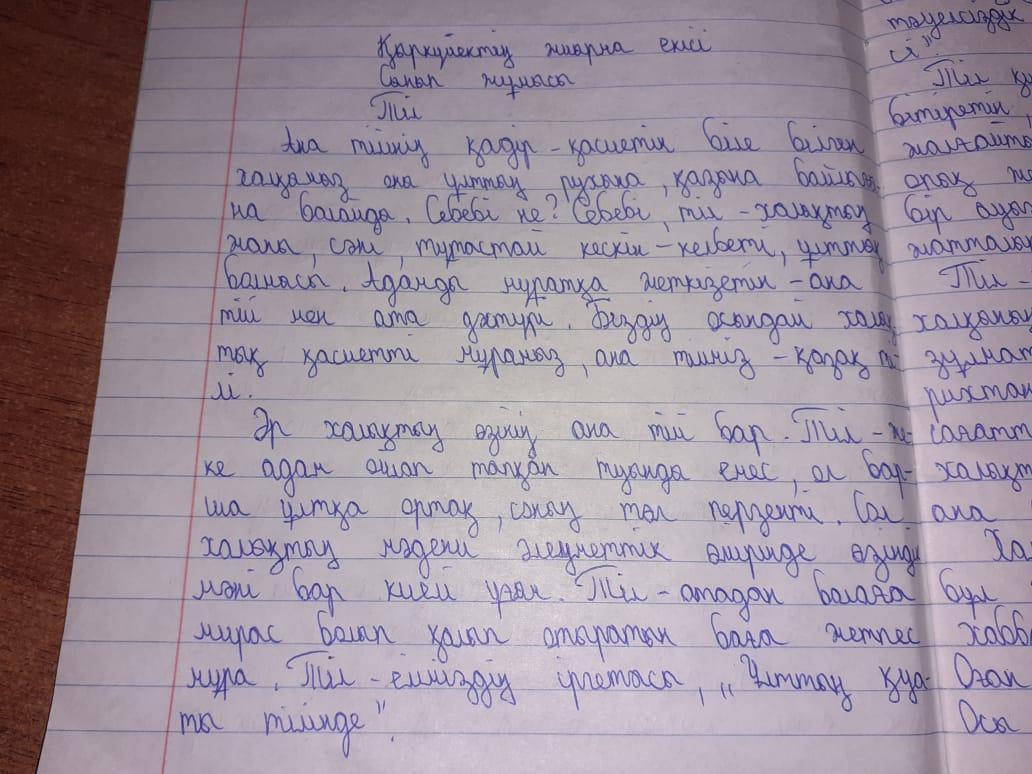 Қыркүйектің жиырма екісі
Сынып жұмысы
Тіл
Ана тілінің қадір-қасиетін біле білген
халқымыз оны ұлттың рухына, қазына байлығы-
на балайды. Себебі не? Себебі, тіл - халықтың
жаны, сәні, тұтастай кескін-келбеті, ұлттық
болмысы. Адамды мұратқа жеткізетін - ана
тілі мен ата дәстүрі. Біздің осындай халық-
тық қасиетті мұрамыз, ана тіліміз - қазақ ті-
лі.
Әр халықтың өзінің ана тілі бар. Тіл - же-
ке адам ойлап тапқан туынды емес, ол бар-
ша ұлтқа ортақ, соның төл перзенті. Сол
халықтың мәдени әлеуметтік өмірінде өзіндік
мәні бар киелі ұғым. Тіл - атадан балаға
мирас болып қалып отыратын баға жетпес
мұра. Тіл - еліміздің іргетасы, „Ұлттың қуа-
ты тілінде".
тәуелсіздік
сі"
Тіл
бітіретін
бір ауыз
Тіл -
халқының
ана
бұл
Оған
Осы